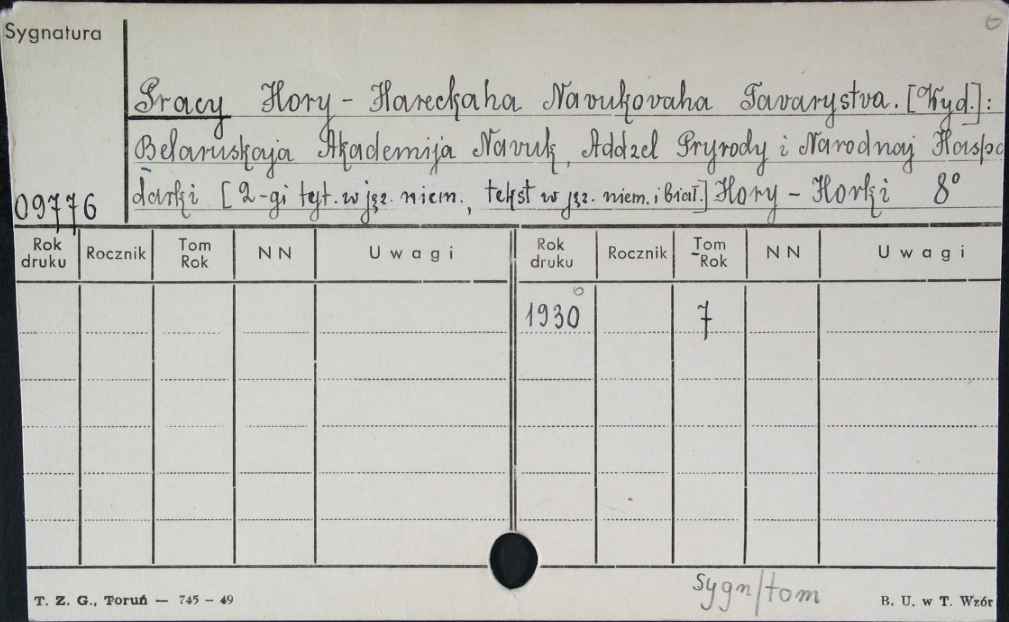 Sygnatura
Pracy Hory - Hareckaha Navukovaha Tavarystva. [Wyd.]:
Belaruskaja Akademija Navuk, Addzel Pryrody i Narodnaj Haspo
darki [2-gi tyt. w jęz. niem., tekst w jęz. niem. i biał.] Hory - Horki 8°
09776
Rok druku Rocznik Tom Rok N N Uwagi Rok druku Rocznik Tom - Rok N N Uwagi
1930 7
sygn/tom
T. Z. G., Toruń — 745 - 49 B. U. w T. Wzór